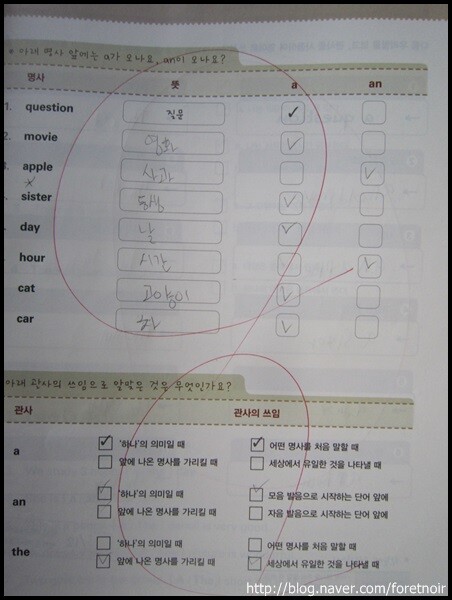 아래 명사 앞에는 a가 오나요, an이 오나요?
명사 뜻 a an
1. question 질문 ✓
2. movie 영화 ✓
apple 사과 ✓
sister 동생 ✓
day 날 ✓
hour 시간 ✓
cat 고양이 ✓
car 차 ✓
아래 관사의 쓰임으로 알맞은 것은 무엇인가요?
관사 관사의 쓰임
a ✓ '하나'의 의미일 때 ✓ 어떤 명사를 처음 말할 때
앞에 나온 명사를 가리킬 때 세상에서 유일한 것을 나타낼 때
an ✓ '하나'의 의미일 때 ✓ 모음 발음으로 시작하는 단어 앞에
앞에 나온 명사를 가리킬 때 자음 발음으로 시작하는 단어 앞에
the '하나'의 의미일 때 어떤 명사를 처음 말할 때
✓ 앞에 나온 명사를 가리킬 때 ✓ 세상에서 유일한 것을 나타낼 때
http://blog.naver.com/foretnoir